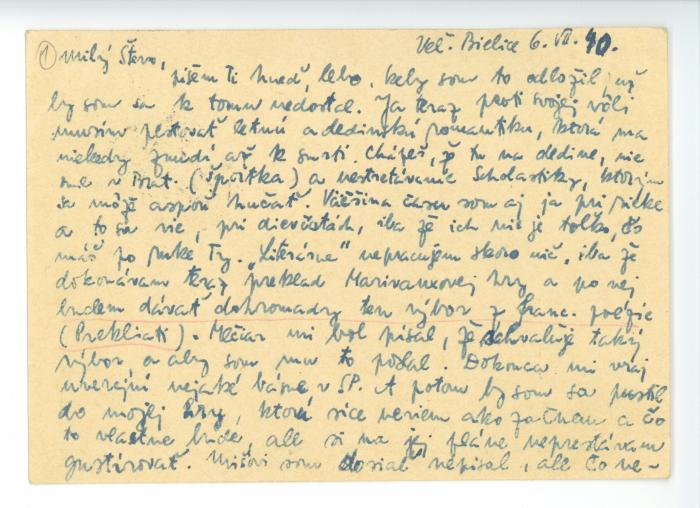 ① Milý Števo, Veľ. Bielice 6. VII. 40.
píšem Ti hneď, lebo, keby som to odložil, už
by som sa k tomu nedostal. Ja teraz proti svojej vôli
musím pestovať letnú a dedinskú romantiku, ktorá ma
niekedy znudí až k smrti. Chápeš, že tu na dedine, nie
sme v Brat. (špritka) a nestretávame Scholastiky, ktorým
sa môže aspoň hučať. Väčšinu času som aj ja pri rieke
a to sa vie, pri dievčatách, iba že ich nie je toľko, čo
máš po ruke Ty. „Literárne" nepracujem skoro nič, iba že
dokonávam teraz preklad Marivauxovej hry a po nej
budem dávať dohromady ten výbor z franc. poézie
(Prekliati). Mečiar mi bol písal, že schvaľuje taký
výbor, a aby som mu to poslal. Dokonca mi vraj
uverejní nejaké básne v SP. A potom by som sa pustil
do mojej hry, ktorá síce neviem ako začnem a čo
to vlastne bude, ale si na jej pláne neprestávam
gustírovať. Mišovi som dosiaľ nepísal, ale čo ne-